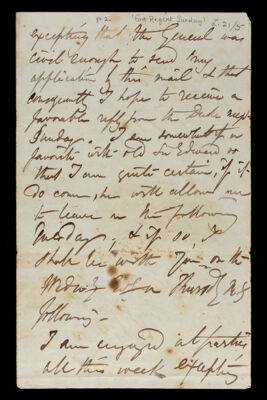 p.2. (3rd Regent Sunday) L. 21/5
excepting that the General was
civil enough to send my
application by this mail & that
consequently I hope to receive a
favorable reply from the Duke next
Sunday. I am somewhat of a
favorite with old Sir Edward so
that I am quite certain, if it
do come, he will allow me
to leave on the following
Tuesday, & if so, I
shall be with you on the
Wedn'y or Thursd'y
following.
I am engaged at parties
all this week excepting